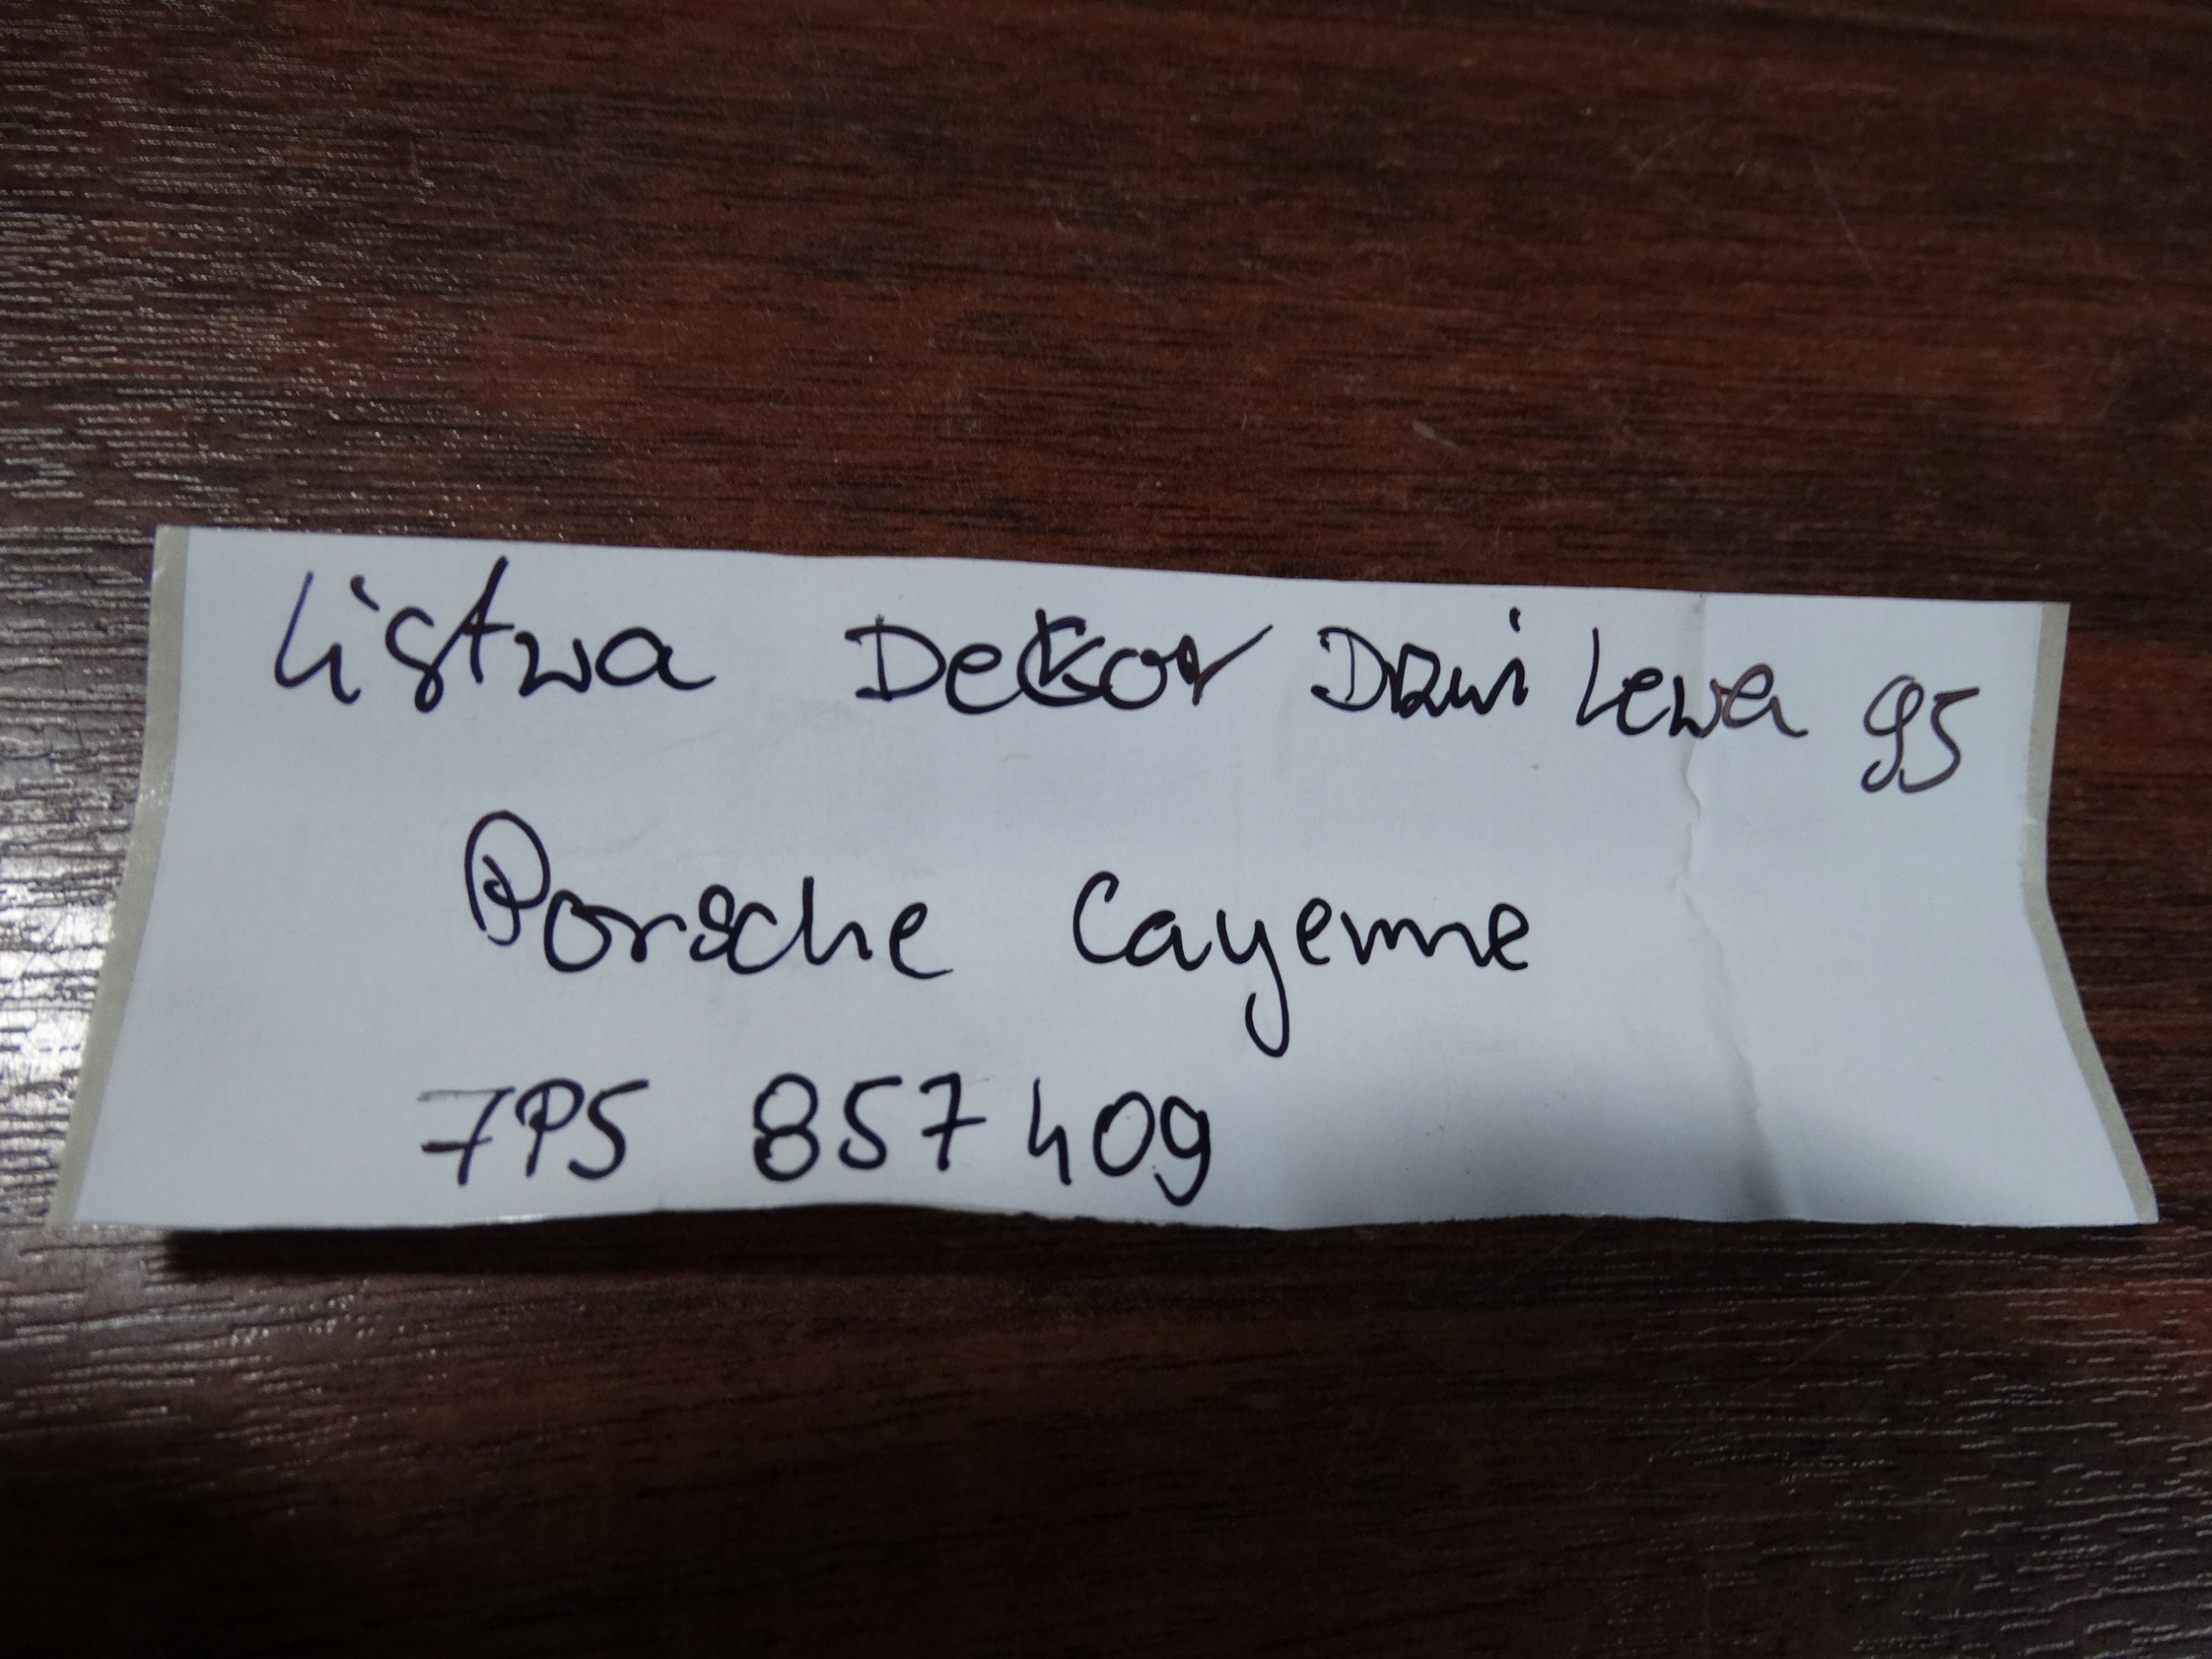 Listwa Dekor Drzwi Lewa 95
Porsche Cayenne
7P5 857 409